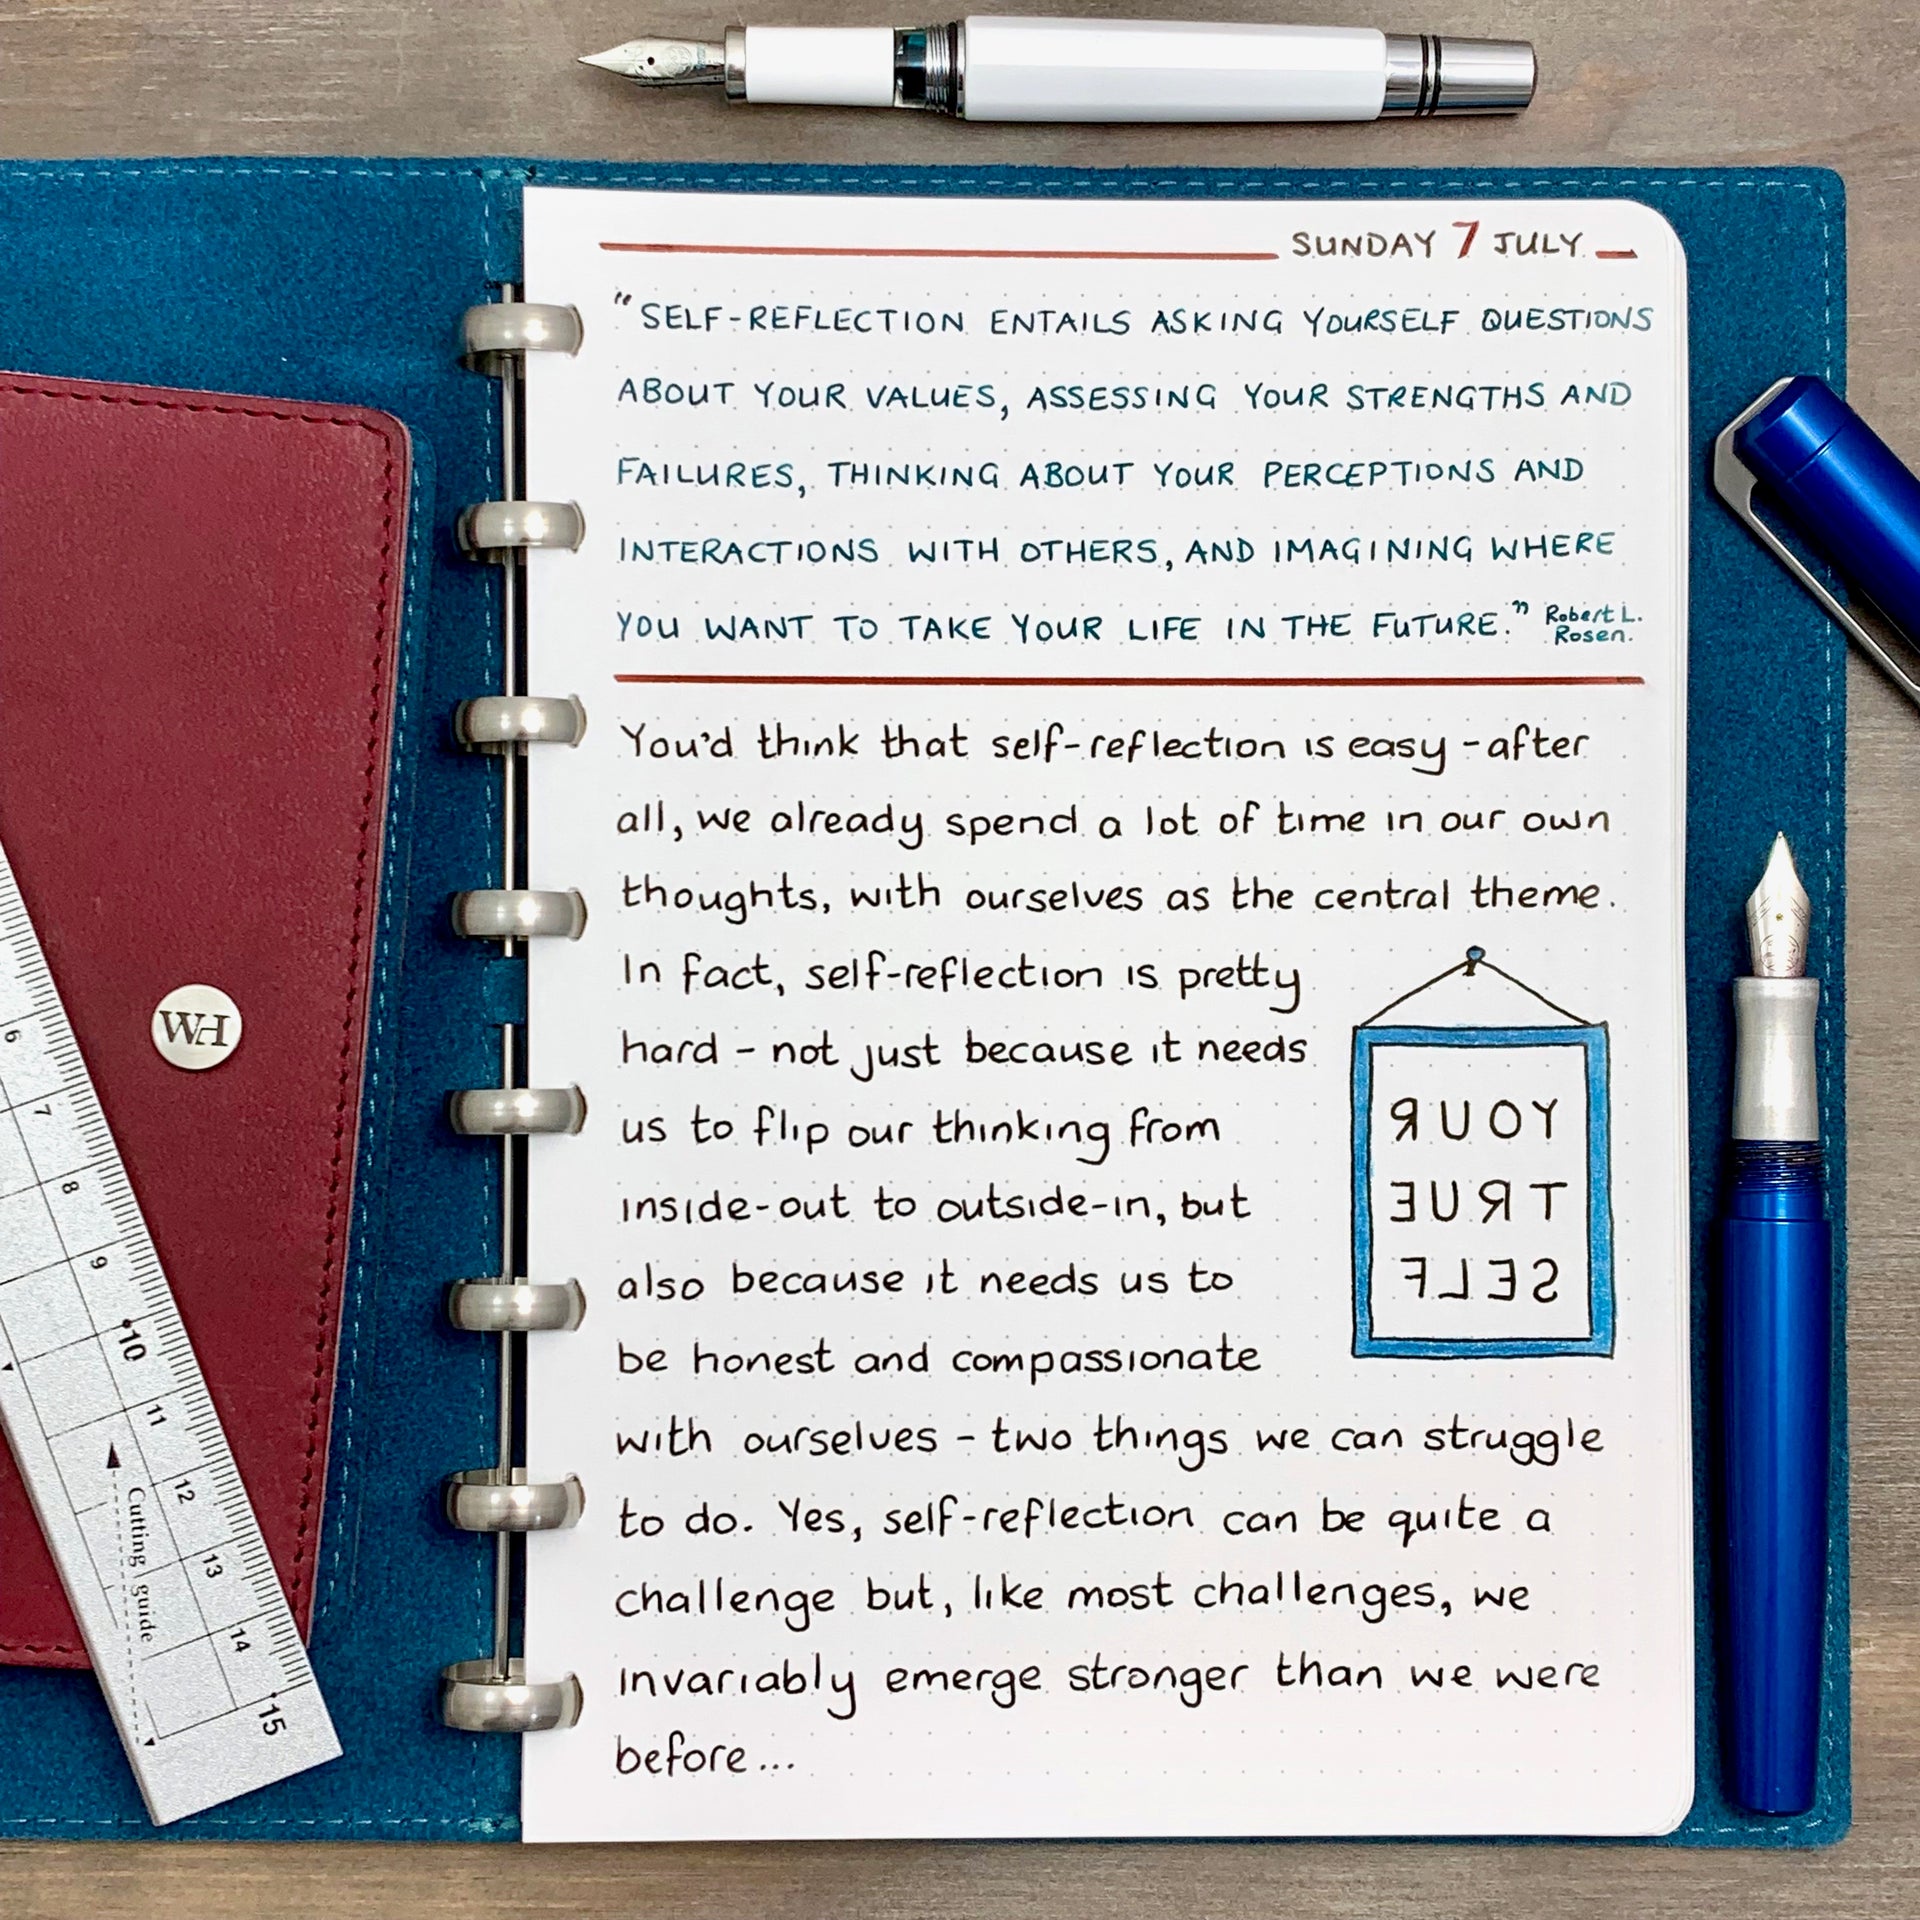 SUNDAY 7 JULY
"SELF-REFLECTION ENTAILS ASKING YOURSELF QUESTIONS
ABOUT YOUR VALUES, ASSESSING YOUR STRENGTHS AND
FAILURES, THINKING ABOUT YOUR PERCEPTIONS AND
INTERACTIONS WITH OTHERS, AND IMAGINING WHERE
YOU WANT TO TAKE YOUR LIFE IN THE FUTURE." Robert L.
Rosen.
You'd think that self-reflection is easy - after
all, we already spend a lot of time in our own
thoughts, with ourselves as the central theme.
In fact, self-reflection is pretty
hard - not just because it needs
us to flip our thinking from
inside-out to outside-in, but
also because it needs us to
be honest and compassionate
with ourselves - two things we can struggle
to do. Yes, self-reflection can be quite a
challenge but, like most challenges, we
invariably emerge stronger than we were
before...
YOUR
TRUE
SELF
WH
6
7
8
9
10
11
12
13
14
15
Cutting guide